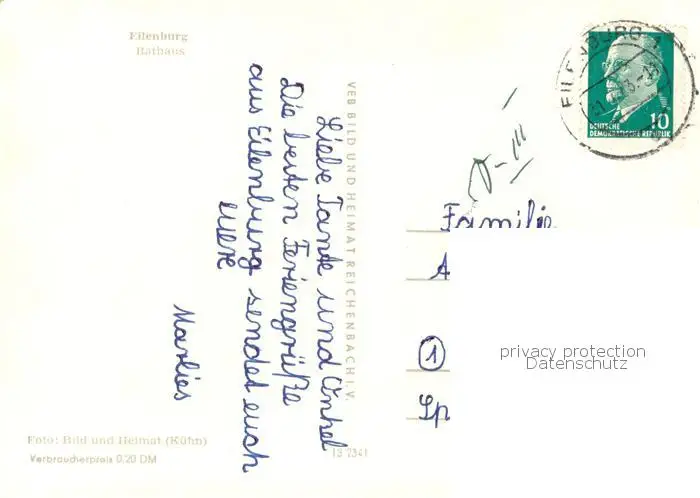 Eilenburg
Rathaus
Liebe Tante und Onkel
Die besten Feriengrüße
aus Eilenburg sendet euch
eure
Marlies
VEB BILD UND HEIMAT REICHENBACH I. V.
Foto: Bild und Heimat (Kühn)
Verbraucherpreis 0,20 DM
EILENBURG 1
DEUTSCHE
DEMOKRATISCHE REPUBLIK
10
Familie
A
1
Sp
privacy protection
Datenschutz